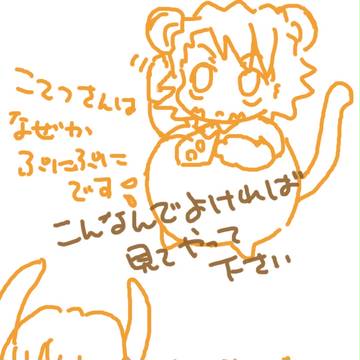 こてつさんは
なぜか
ぷにぷに
です!
こんなんでよければ
見てやって
下さい